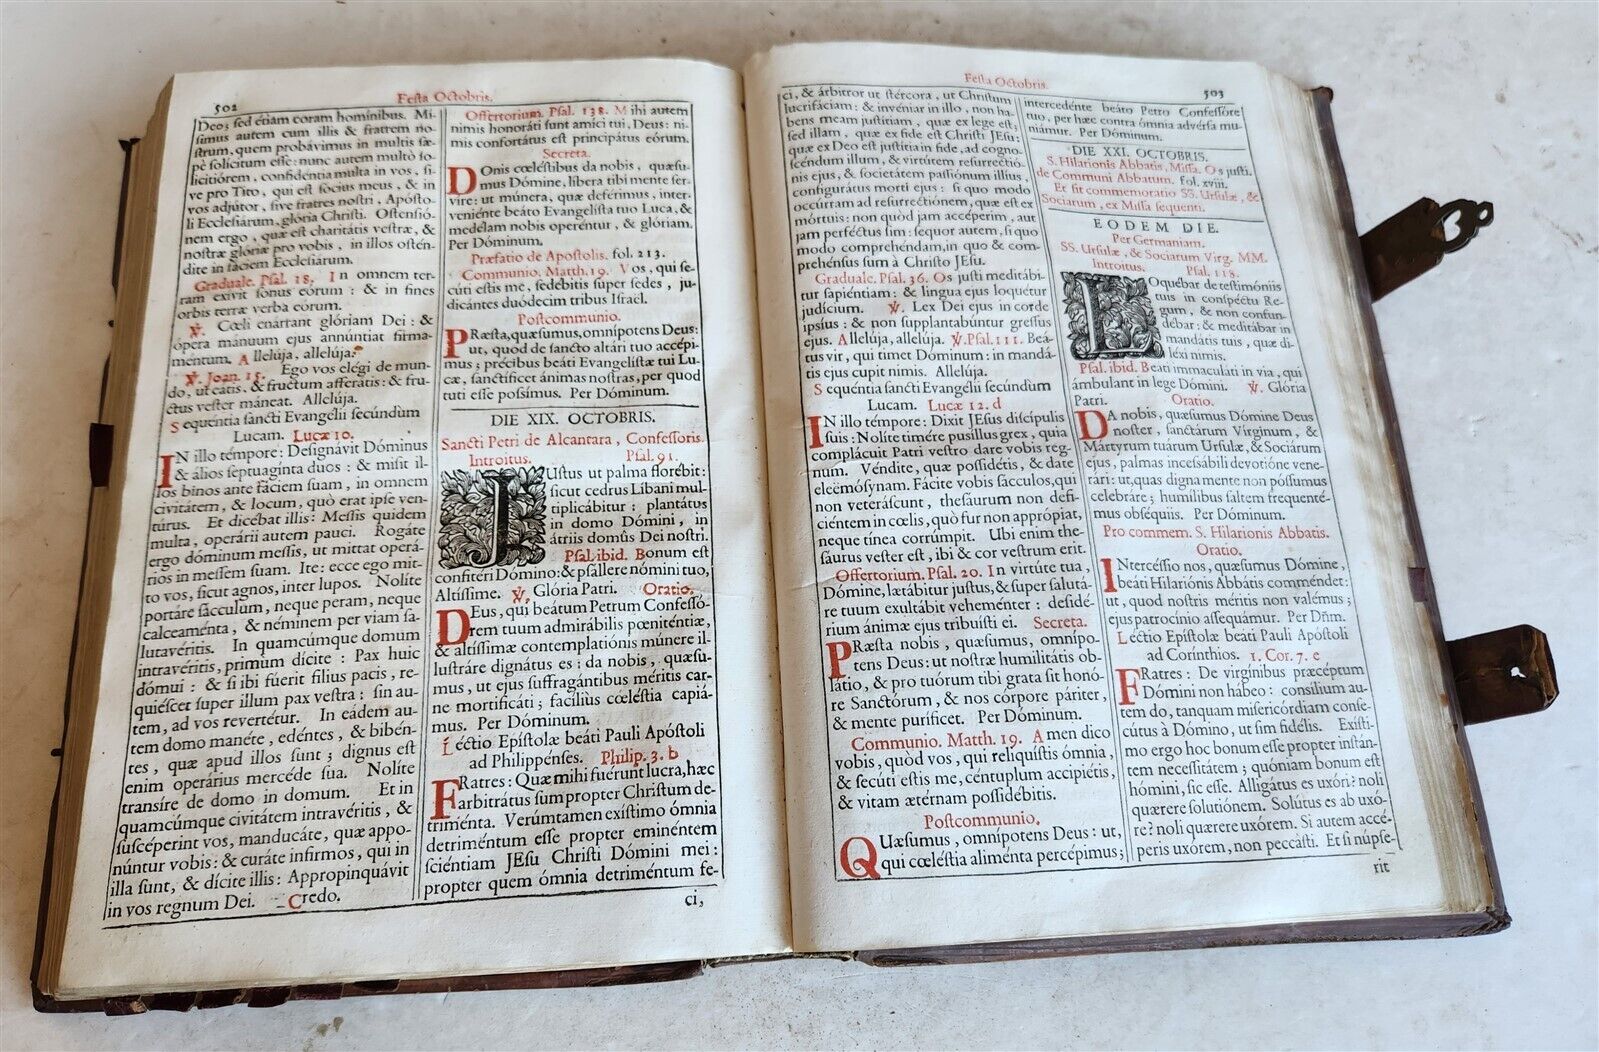 502
Festa Octobris.
Deo; sed étiam coram homínibus. Mi-
simus autem cum illis & fratrem no-
strum, quem probávimus in multis sæ-
pè solícitum esse: nunc autem multò so-
licitiórem, confidéntia multa in vos, si-
ve pro Tito, qui est sócius meus, & in
vos adjútor, sive fratres nostri, Apósto-
li Ecclesiárum, glória Christi. Ostensió-
nem ergo, quæ est charitátis vestræ, &
nostræ glóriæ pro vobis, in illos ostén-
dite in fáciem Ecclesiárum.
Graduale. Psal. 18. In omnem ter-
ram exívit sonus eórum: & in fines
orbis terræ verba eórum.
℣. Cœli enárrant glóriam Dei: &
ópera mánuum ejus annúntiat firma-
méntum. Allelúja, allelúja.
℣. Joan. 15. Ego vos elégi de mun-
do, ut eátis, & fructum afferátis: & fru-
ctus vester máneat. Allelúja.
Sequéntia sancti Evangélii secúndùm
Lucam. Lucæ 10.
IN illo témpore: Designávit Dóminus
& álios septuagínta duos: & misit il-
los binos ante fáciem suam, in omnem
civitátem, & locum, quò erat ipse ven-
túrus. Et dicébat illis: Messis quidem
multa, operárii autem pauci. Rogáte
ergo dóminum messis, ut mittat operá-
rios in messem suam. Ite: ecce ego mit-
to vos, sicut agnos, inter lupos. Nolíte
portáre sácculum, neque peram, neque
calceaménta, & néminem per viam sa-
lutavéritis. In quamcúmque domum
intravéritis, primum dícite: Pax huic
dómui: & si ibi fúerit fílius pacis, re-
quiéscet super illum pax vestra: sin au-
tem, ad vos revertétur. In eádem au-
tem domo manéte, edéntes, & bibén-
tes, quæ apud illos sunt; dignus est
enim operárius mercéde sua. Nolíte
transíre de domo in domum. Et in
quamcúmque civitátem intravéritis, &
suscéperint vos, manducáte, quæ appo-
núntur vobis: & curáte infírmos, qui in
illa sunt, & dícite illis: Appropinquávit
in vos regnum Dei. Credo.
Offertorium. Psal. 138. Mihi autem
nimis honoráti sunt amíci tui, Deus: ni-
mis confortátus est principátus eórum.
Secreta.
DOnis cœléstibus da nobis, quæsu-
mus Dómine, líbera tibi mente ser-
víre: ut múnera, quæ deférimus, inter-
veniénte beáto Evangelísta tuo Luca, &
medélam nobis operéntur, & glóriam.
Per Dóminum.
Præfatio de Apostolis. fol. 213.
Communio. Matth. 19. Vos, qui se-
cúti estis me, sedébitis super sedes, ju-
dicántes duódecim tribus Israel.
Postcommunio.
PRæsta, quæsumus, omnípotens Deus:
ut, quod de sancto altári tuo accépi-
mus; précibus beáti Evangelístæ tui Lu-
cæ, sanctíficet ánimas nostras, per quod
tuti esse possímus. Per Dóminum.
DIE XIX. OCTOBRIS.
Sancti Petri de Alcantara, Confessoris.
Introitus. Psal. 91.
JUstus ut palma florébit:
sicut cedrus Líbani mul-
tiplicábitur: plantátus
in domo Dómini, in
átriis domûs Dei nostri.
Psal. ibid. Bonum est
confitéri Dómino: & psállere nómini tuo,
Altíssime. ℣. Glória Patri. Oratio.
DEus, qui beátum Petrum Confessó-
rem tuum admirábilis pœniténtiæ,
& altíssimæ contemplatiónis múnere il-
lustráre dignátus es: da nobis, quæsu-
mus, ut ejus suffragántibus méritis car-
ne mortificáti; facílius cœléstia capiá-
mus. Per Dóminum.
Léctio Epístolæ beáti Pauli Apóstoli
ad Philippénses. Philip. 3. b
FRatres: Quæ mihi fuérunt lucra, hæc
arbitrátus sum propter Christum de-
triménta. Verúmtamen exístimo ómnia
detriméntum esse propter eminéntem
sciéntiam JEsu Christi Dómini mei:
propter quem ómnia detriméntum fe-
ci,
Festa Octobris.
503
ci, & árbitror ut stércora, ut Christum
lucrifáciam: & invéniar in illo, non ha-
bens meam justítiam, quæ ex lege est;
sed illam, quæ ex fide est Christi JEsu:
quæ ex Deo est justítia in fide, ad cogno-
scéndum illum, & virtútem resurrectió-
nis ejus, & societátem passiónum illíus,
configurátus morti ejus: si quo modo
occúrram ad resurrectiónem, quæ est ex
mórtuis: non quòd jam accéperim, aut
jam perféctus sim: sequor autem, si quo
modo comprehéndam, in quo & com-
prehénsus sum à Christo JEsu.
Graduale. Psal. 36. Os justi meditábi-
tur sapiéntiam: & lingua ejus loquétur
judícium. ℣. Lex Dei ejus in corde
ipsíus: & non supplantabúntur gressus
ejus. Allelúja, allelúja. ℣. Psal. 111. Beá-
tus vir, qui timet Dóminum: in mandá-
tis ejus cupit nimis. Allelúja.
Sequéntia sancti Evangélii secúndùm
Lucam. Lucæ 12. d
IN illo témpore: Dixit JEsus discípulis
suis: Nolíte timére pusíllus grex, quia
complácuit Patri vestro dare vobis reg-
num. Véndite, quæ possidétis, & date
eleëmósynam. Fácite vobis sácculos, qui
non veteráscunt, thesaúrum non defi-
ciéntem in cœlis, quò fur non apprópiat,
neque tínea corrúmpit. Ubi enim the-
saúrus vester est, ibi & cor vestrum erit.
Offertorium. Psal. 20. In virtúte tua,
Dómine, lætábitur justus, & super salutá-
re tuum exultábit veheménter: desidé-
rium ánimæ ejus tribuísti ei. Secreta.
PRæsta nobis, quæsumus, omnípo-
tens Deus: ut nostræ humilitátis ob-
látio, & pro tuórum tibi grata sit honó-
re Sanctórum, & nos córpore páriter,
& mente puríficet. Per Dóminum.
Communio. Matth. 19. Amen dico
vobis, quòd vos, qui reliquístis ómnia,
& secúti estis me, céntuplum accipiétis,
& vitam ætérnam possidébitis.
Postcommunio.
QUæsumus, omnípotens Deus: ut,
qui cœléstia aliménta percépimus;
intercedénte beáto Petro Confessóre
tuo, per hæc contra ómnia advérsa mu-
niámur. Per Dóminum.
DIE XXI. OCTOBRIS.
S. Hilarionis Abbatis, Missa. Os justi.
de Communi Abbatum. fol. xviii.
Et fit commemoratio SS. Ursulæ, &
Sociarum, ex Missa sequenti.
EODEM DIE.
Per Germaniam.
SS. Ursulæ, & Sociarum Virg. MM.
Introitus. Psal. 118.
LOquébar de testimóniis
tuis in conspéctu Re-
gum, & non confun-
débar: & meditábar in
mandátis tuis, quæ di-
léxi nimis.
Psal. ibid. Beáti immaculáti in via, qui
ámbulant in lege Dómini. ℣. Glória
Patri. Oratio.
DA nobis, quæsumus Dómine Deus
noster, sanctárum Vírginum, &
Mártyrum tuárum Ursulæ, & Sociárum
ejus, palmas incessábili devotióne vene-
rári: ut, quas digna mente non póssumus
celebráre; humílibus saltem frequenté-
mus obséquiis. Per Dóminum.
Pro commem. S. Hilarionis Abbatis.
Oratio.
INtercéssio nos, quæsumus, Dómine,
beáti Hilariónis Abbátis comméndet:
ut, quod nostris méritis non valémus;
ejus patrocínio assequámur. Per Dñm.
Léctio Epístolæ beáti Pauli Apóstoli
ad Corínthios. 1. Cor. 7. e
FRatres: De virgínibus præcéptum
Dómini non hábeo: consílium au-
tem do, tanquam misericórdiam conse-
cútus à Dómino, ut sim fidélis. Exísti-
mo ergo hoc bonum esse propter instán-
tem necessitátem; quóniam bonum est
hómini, sic esse. Alligátus es uxóri? noli
quærere solutiónem. Solútus es ab uxó-
re? noli quærere uxórem. Si autem accé-
peris uxórem, non peccásti. Et si núpse-
rit